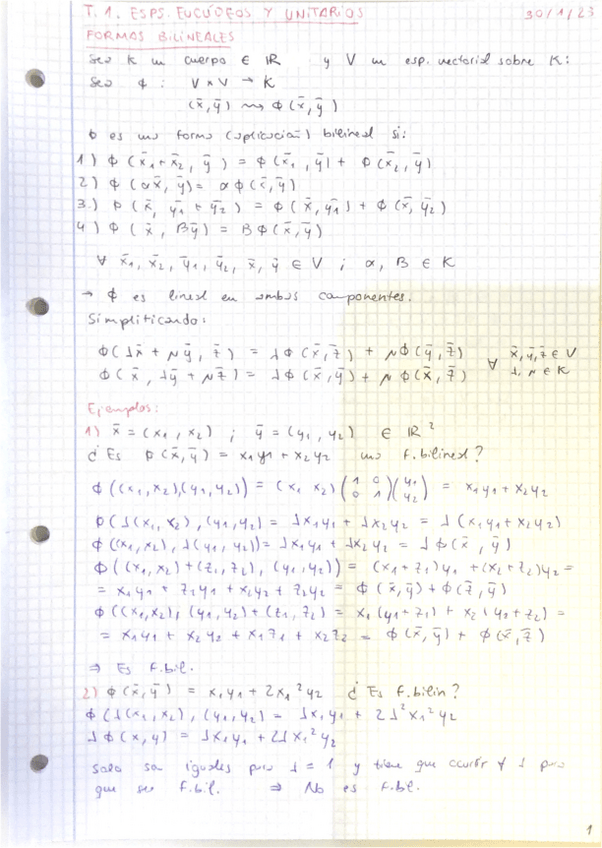 T.1. ESPS. EUCLÍDEOS Y UNITARIOS 30/1/23
FORMAS BILINEALES
Sea K un cuerpo ∈ ℝ y V un esp. vectorial sobre K:
Sea ϕ : V × V → K
(x̄,ȳ) ⇝ ϕ(x̄,ȳ)
ϕ es una forma (aplicación) bilineal si:
1) ϕ(x̄₁+x̄₂, ȳ) = ϕ(x̄₁,ȳ) + ϕ(x̄₂,ȳ)
2) ϕ(αx̄, ȳ) = αϕ(x̄,ȳ)
3) ϕ(x̄, ȳ₁+ȳ₂) = ϕ(x̄,ȳ₁) + ϕ(x̄,ȳ₂)
4) ϕ(x̄, βȳ) = βϕ(x̄,ȳ)
∀ x̄₁, x̄₂, ȳ₁, ȳ₂, x̄, ȳ ∈ V ; α, β ∈ K
→ ϕ es lineal en ambas componentes.
Simplificando:
ϕ(λx̄ + μȳ, z̄) = λϕ(x̄,z̄) + μϕ(ȳ,z̄) ∀ x̄,ȳ,z̄ ∈ V
ϕ(x̄, λȳ + μz̄) = λϕ(x̄,ȳ) + μϕ(x̄,z̄) λ, μ ∈ K
Ejemplos:
1) x̄ = (x₁, x₂) ; ȳ = (y₁, y₂) ∈ ℝ²
¿Es ϕ(x̄,ȳ) = x₁y₁ + x₂y₂ una f.bilineal?
ϕ((x₁,x₂),(y₁,y₂)) = (x₁ x₂)(1 0 / 0 1)(y₁ / y₂) = x₁y₁ + x₂y₂
ϕ(λ(x₁,x₂),(y₁,y₂) = λx₁y₁ + λx₂y₂ = λ(x₁y₁+x₂y₂)
ϕ((x₁,x₂), λ(y₁,y₂)) = λx₁y₁ + λx₂y₂ = λϕ(x̄,ȳ)
ϕ((x₁,x₂)+(z₁,z₂), (y₁,y₂)) = (x₁+z₁)y₁ + (x₂+z₂)y₂ =
= x₁y₁ + z₁y₁ + x₂y₂ + z₂y₂ = ϕ(x̄,ȳ) + ϕ(z̄,ȳ)
ϕ((x₁,x₂), (y₁,y₂)+(z₁,z₂) = x₁(y₁+z₁) + x₂(y₂+z₂) =
= x₁y₁ + x₂y₂ + x₁z₁ + x₂z₂ = ϕ(x̄,ȳ) + ϕ(x̄,z̄)
⇒ Es f.bil.
2) ϕ(x̄,ȳ) = x₁y₁ + 2x₁²y₂ ¿Es f.bilin?
ϕ(λ(x₁,x₂),(y₁,y₂) = λx₁y₁ + 2λ²x₁²y₂
λϕ(x,y) = λx₁y₁ + 2λx₁²y₂
solo son iguales para λ = 1 y tiene que ocurrir ∀ λ para
que sea f.bil. ⇒ No es f.bil.
1